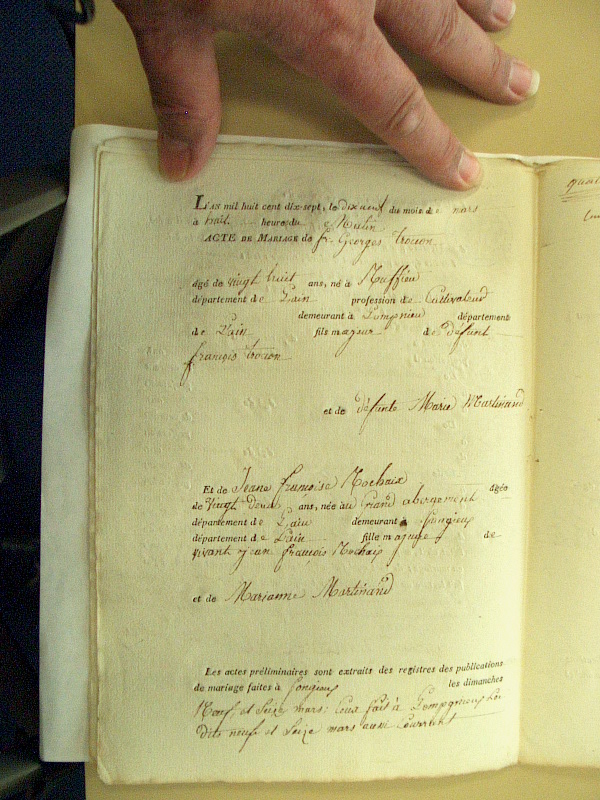 L'AN mil huit cent dix-sept, le dix neuf du mois de mars
à huit heures du Matin
ACTE DE MARIAGE de fr. Georges trocon
âgé de vingt huit ans, né à Ruffieu
département de L'ain profession de Cultivateur
demeurant à Lompnieu département
de L'ain fils majeur de défunt
françois trocon
et de défunte Marie Martinand
Et de Jeane françoise Rochaix âgée
de Vingt deux ans, née au Grand abergement
département de L'ain demeurant à Songieu
département de L'ain fille majeure de
vivant jean françois Rochaix
et de Marianne Martinand
Les actes préliminaires sont extraits des registres des publications
de mariage faites à Songieu les dimanches
Neuf, et Seize mars; Ceux fait à Lompnieu Les
dits neuf et Seize mars aussi Courrant